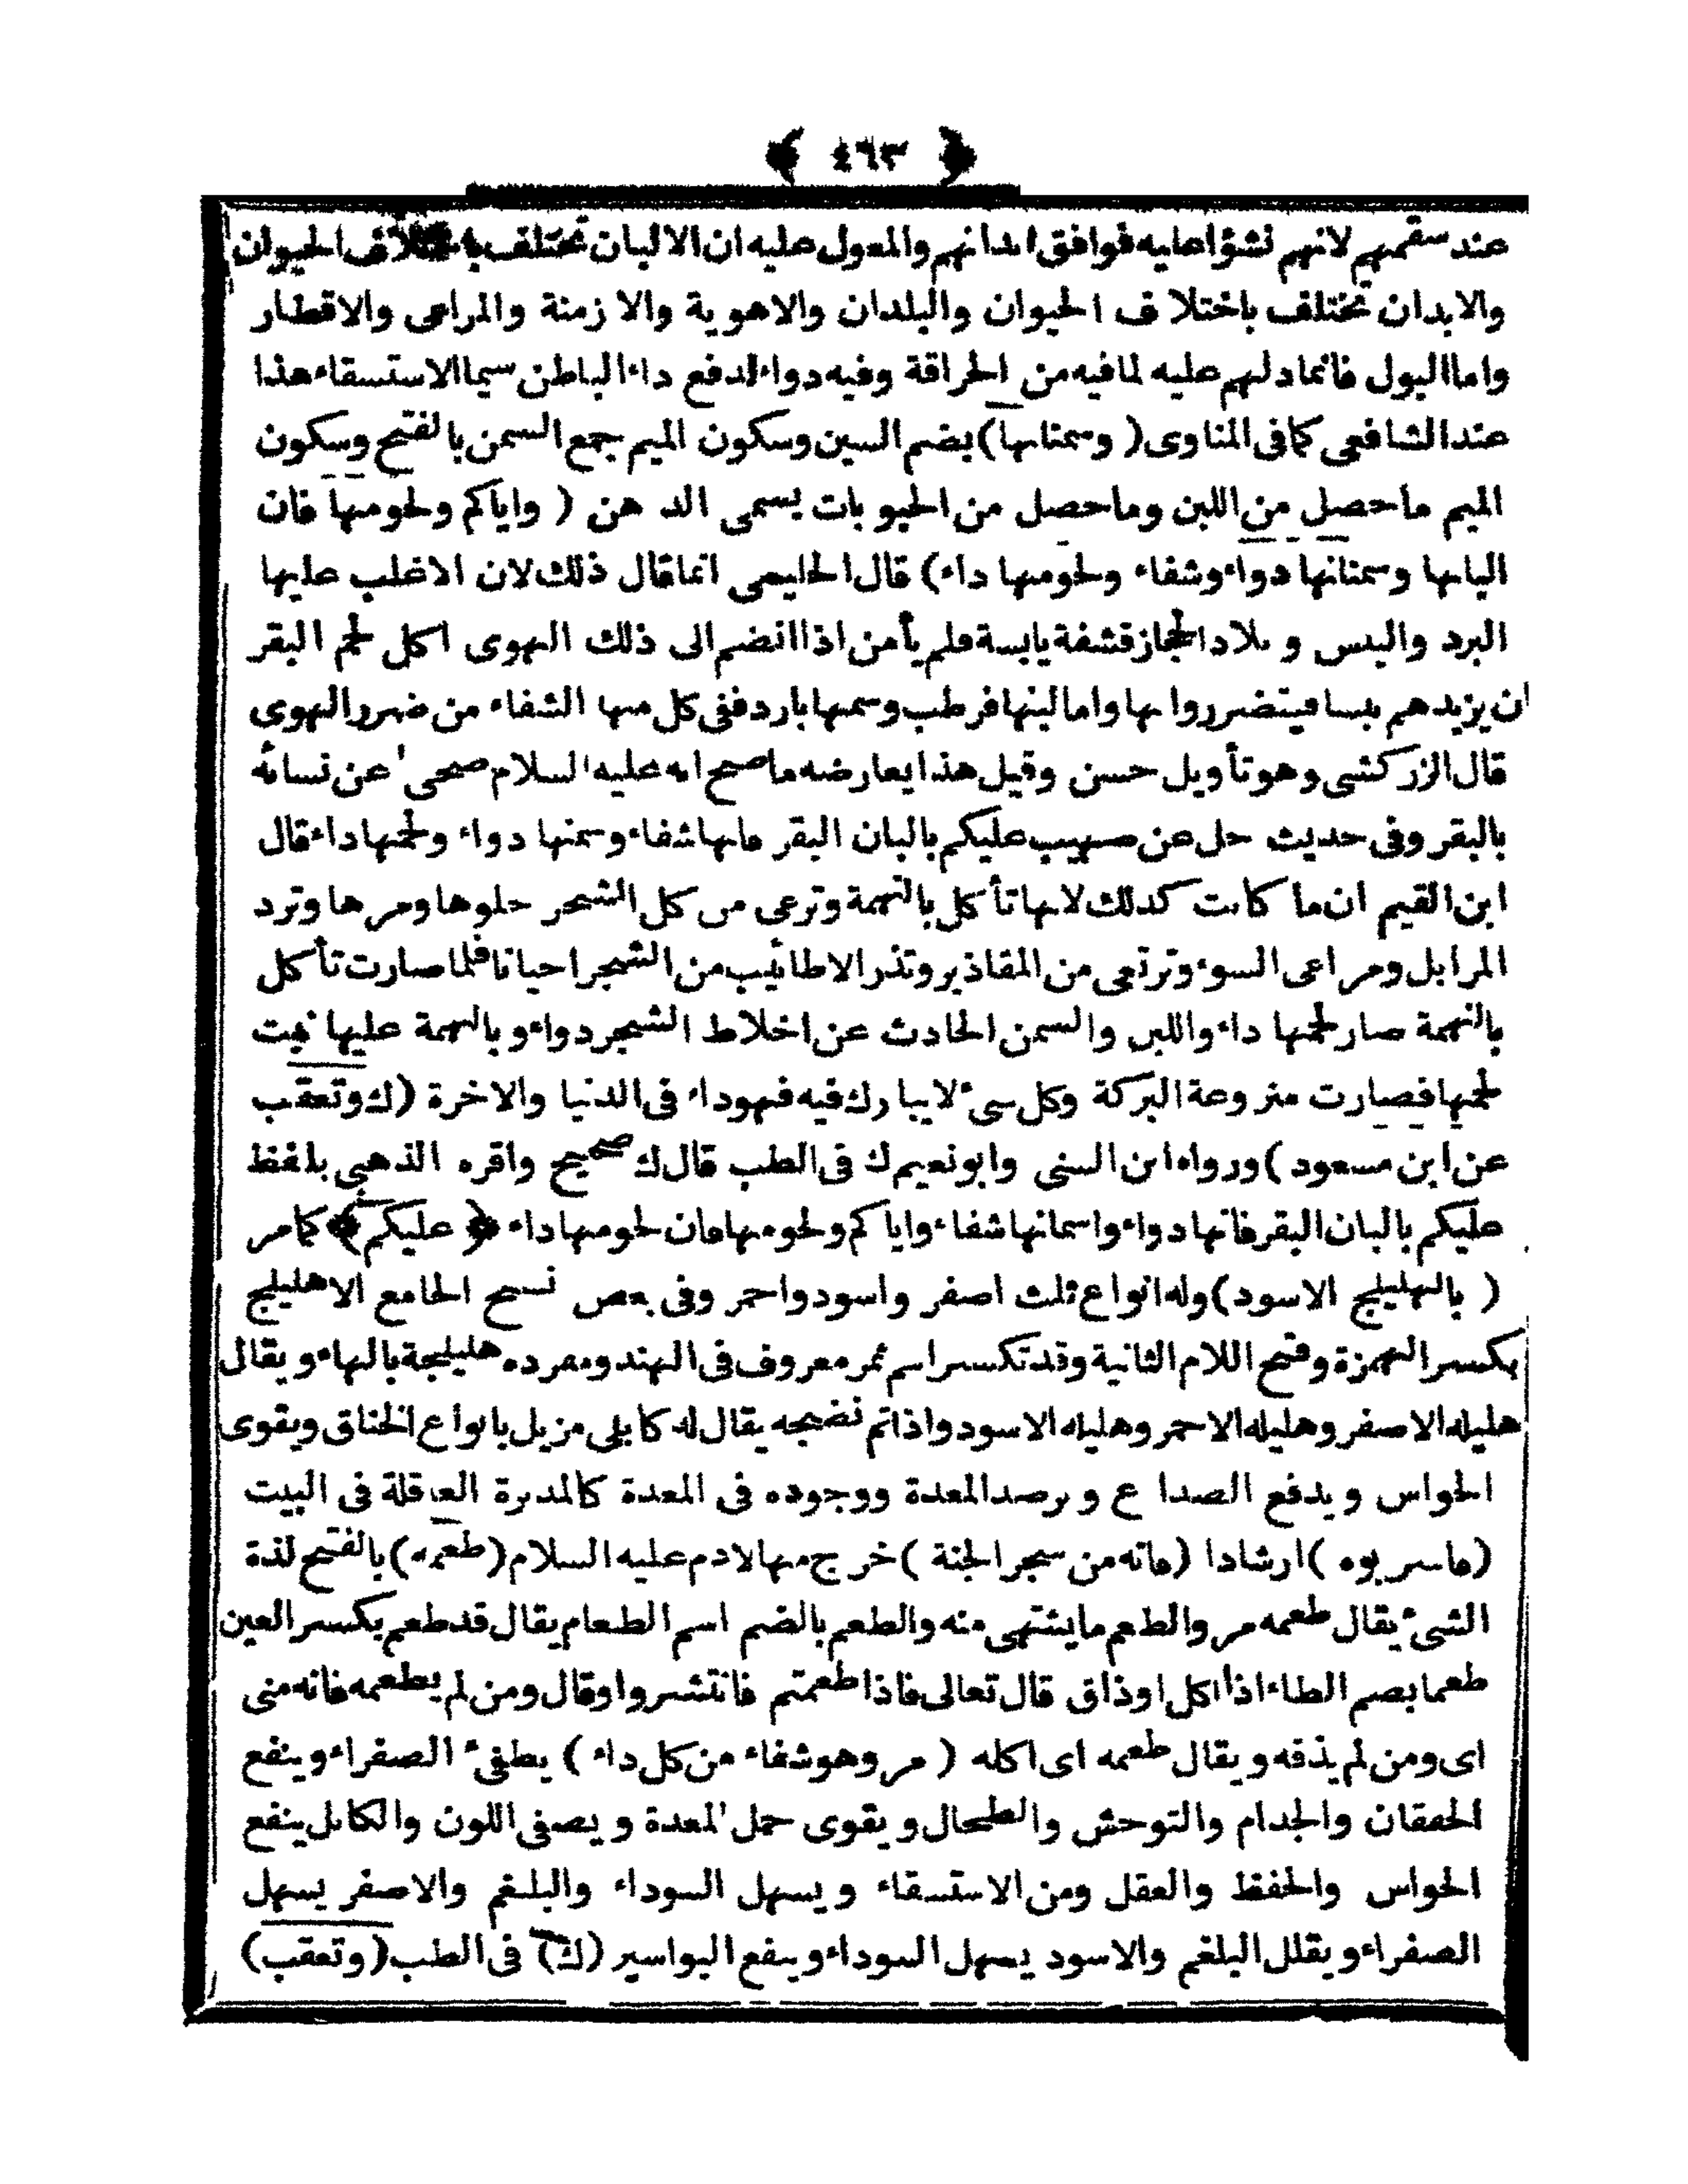 ﴿ ٤٦٣ ﴾
عند سقمهم لانهم نشؤا عليه فوافق ابدانهم والمعول عليه ان الالبان تختلف باختلاف الحيوان
والابدان تختلف باختلاف الحيوان والبلدان والاهوية والازمنة والمراعى والاقطار
واما البول فانما دلهم عليه لما فيه من الحراقة وفيه دواء لدفع داء الباطن سيما الاستسقاء هذا
عند الشافعى كما فى المناوى (وسمنانها) بضم السين وسكون الميم جمع السمن بالفتح وسكون
الميم ما حصل من اللبن وما حصل من الحيوبات يسمى الدهن (واياكم ولحومها فان
البانها وسمنانها دواء وشفاء ولحومها داء) قال الحليمى انما قال ذلك لان الاغلب عليها
البرد واليبس وبلاد الحجاز قشفة يابسة فلم يأمن اذا انضم الى ذلك الهوى اكل لحم البقر
ان يزيدهم يبسا فيتضرروا بها واما لبنها فرطب وسمنها بارد ففى كل منها الشفاء من ضرر الهوى
قال الزركشى وهو تأويل حسن وقيل هذا يعارضه ما صح انه عليه السلام ضحى عن نسائه
بالبقر وفى حديث حل عن صهيب عليكم بالبان البقر فانها شفاء وسمنها دواء ولحمها داء قال
ابن القيم ان ما كانت كذلك لانها تأكل بالنهمة وترعى من كل الشجر حلوها ومرها وترد
المزابل ومراعى السوء وترتعى من المقاذير وتذر الاطائيب من الشجر احيانا فلما صارت تأكل
بالنهمة صار لحمها داء واللبن والسمن الحادث عن اخلاط الشجر دواء وبالنهمة عليها نبت
لحمها فصارت منزوعة البركة وكل شىء لا يبارك فيه فهو داء فى الدنيا والاخرة (ك وتعقب
عن ابن مسعود) ورواه ابن السنى وابو نعيم ك فى الطب قال ك صحيح واقره الذهبى بلفظ
عليكم بالبان البقر فانها دواء واسمانها شفاء واياكم ولحومها فان لحومها داء ﴿عليكم﴾ كما مر
(بالهليلج الاسود) وله انواع ثلث اصفر واسود واحمر وفى بعض نسخ الجامع الاهليلج
بكسر الهمزة وفتح اللام الثانية وقد تكسر اسم ثمر معروف فى الهند ومفرده هليلجة بالهاء ويقال
هليله الاصفر وهليله الاحمر وهليله الاسود واذا تم نضجه يقال له كابلى مزيل بانواع الخناق ويقوى
الحواس ويدفع الصداع وبرصد المعدة ووجوده فى المعدة كالمدبرة العاقلة فى البيت
(فاشربوه) ارشادا (فانه من شجر الجنة) خرج منها لادم عليه السلام (طعمه) بالفتح لذة
الشىء يقال طعمه مر والطعم ما يشتهى منه والطعم بالضم اسم الطعام يقال قد طعم بكسر العين
طعما بضم الطاء اذا اكل او ذاق قال تعالى فاذا طعمتم فانتشروا وقال ومن لم يطعمه فانه منى
اى ومن لم يذقه ويقال طعمه اى اكله (مر وهو شفاء من كل داء) يطفىء الصفراء وينفع
الخفقان والجدام والتوحش والطحال ويقوى خمل المعدة ويصفى اللون والكابلى ينفع
الحواس والحفظ والعقل ومن الاستسقاء ويسهل السوداء والبلغم والاصفر يسهل
الصفراء ويقلل البلغم والاسود يسهل السوداء وينفع البواسير (ك) فى الطب (وتعقب)